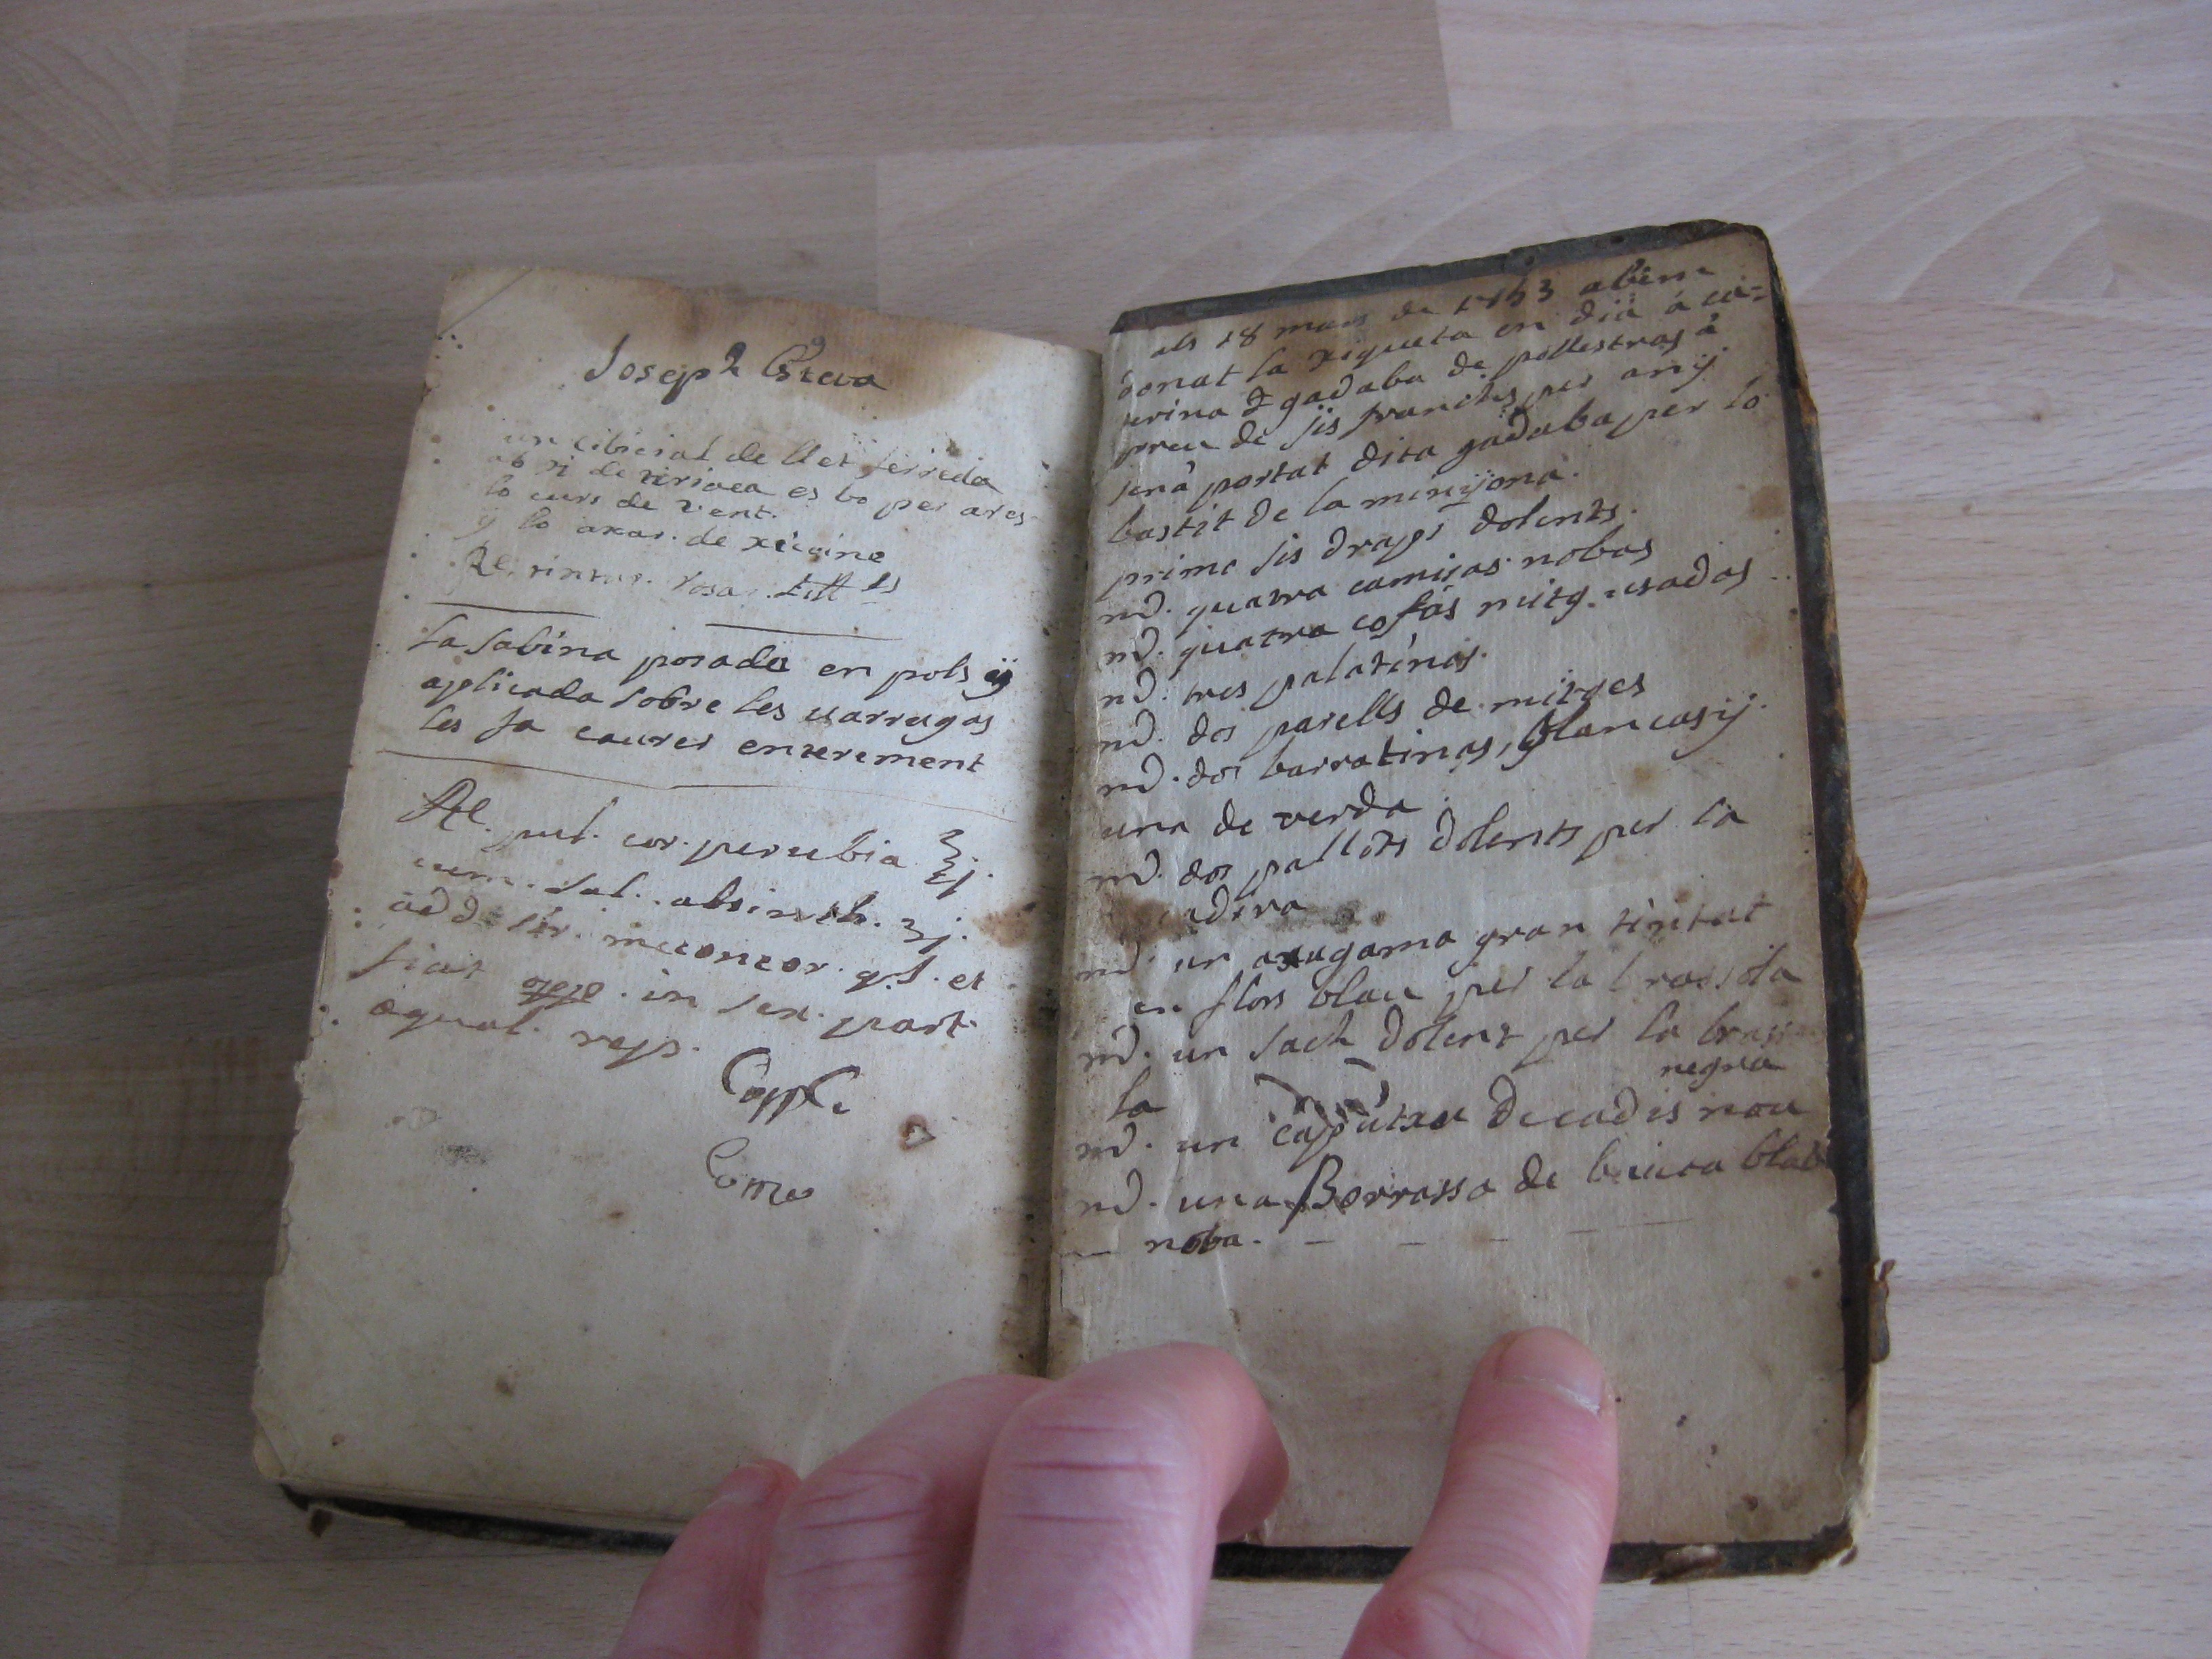 Joseph Esteva
un cibirial de llet ferrada
ab xi de tiriaca es bo per ares
lo curs de vent.
y lo axar. de xicoine
Re. tintur. rosar.
la sabina posada en pols y
aplicada sobre les varrugas
les fa caurer enterement
Re. pul. cor. perubia ʒj.
cum. sal. absinth. ʒj.
add. sir. meconcor. q.s. et
fiat opp. in sex. part.
æqual. rep.
als 18 mars de 1763 abem
donat la xiqueta en dia á ca=
terina gadaba de pollestras á
preu de sis franchs per any
sen á portat dita gadaba per lo
bastit de la minyona.
primo sis draps dolents.
md. quatra camisas nobas
md. quatra cofas mitg. usadas
md. tres palatinas.
md. dos parells de mitges
md. dos barratinas, blancas y.
una de verda
md. dos pallots dolents per la
md. un axugama gran tintat
en flors blau per la brassola
md. un sach dolent per la brasso
la
negra
md. un caputxu de cadis nou
md. una Borrassa de baieta blab
noba.